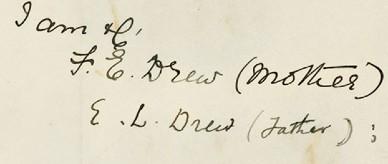 I am &c,
F. E. Drew (Mother)
E. L. Drew (Father) :